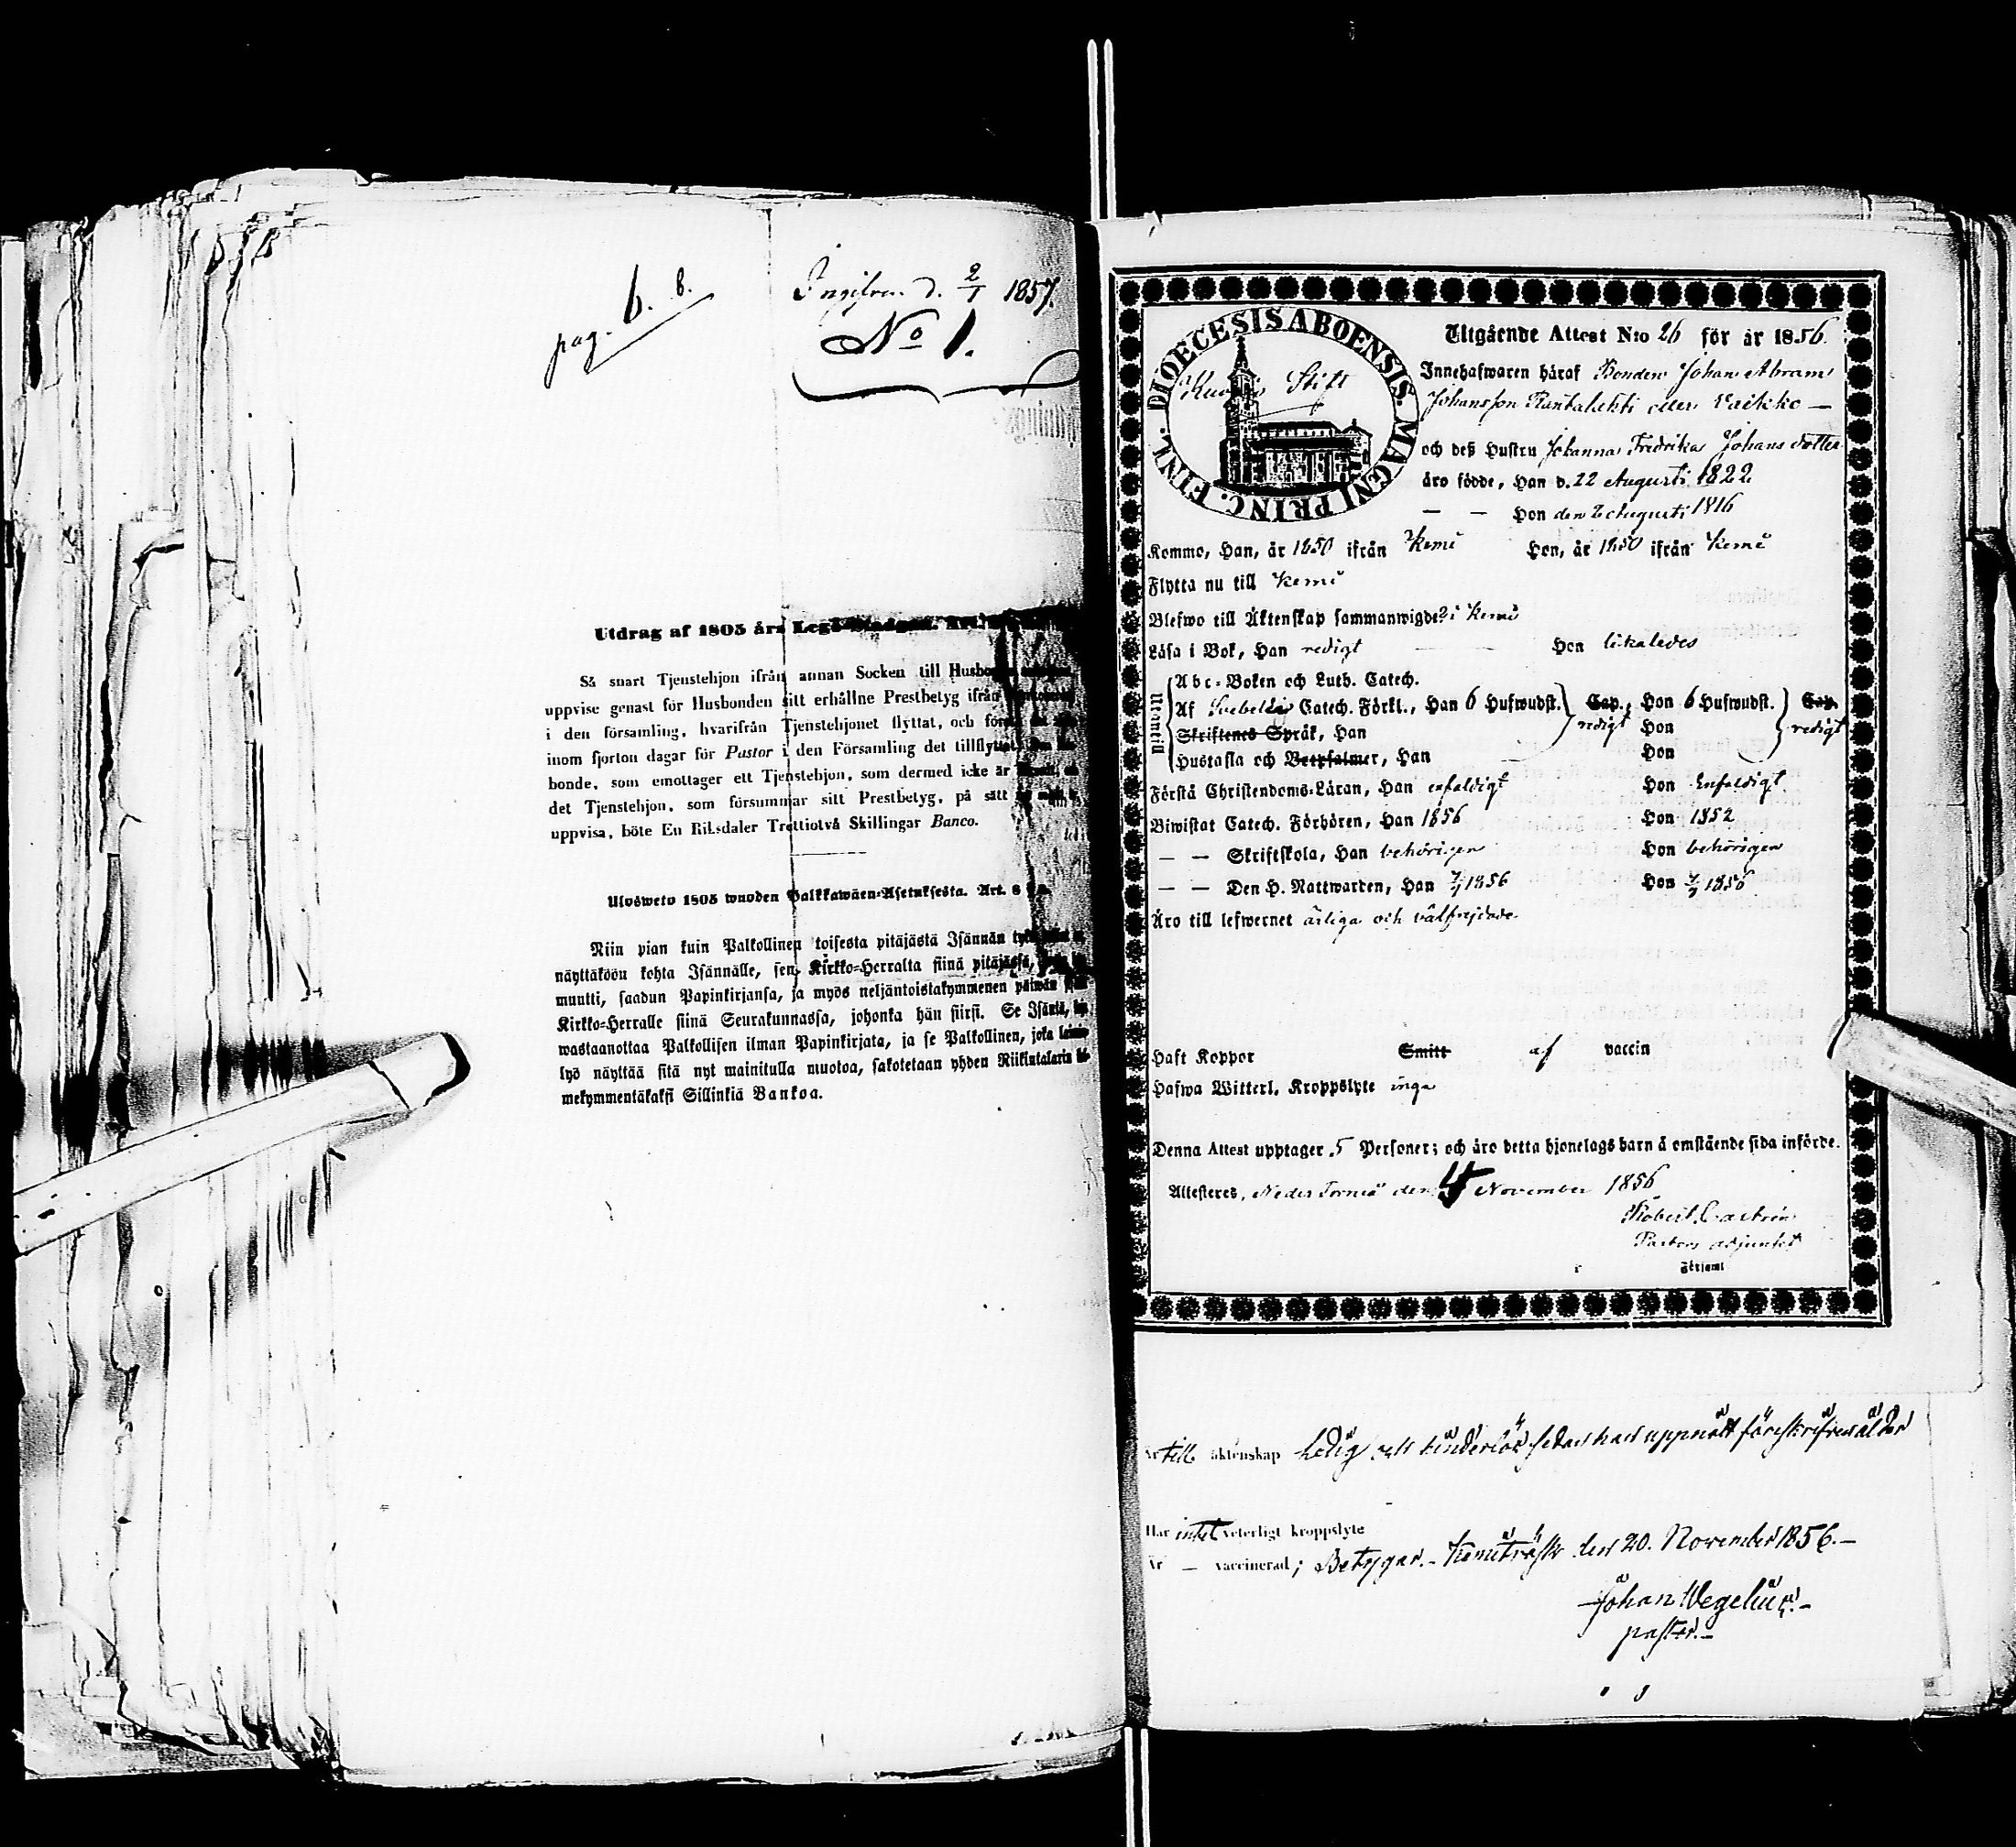 pag. 6. b.
Ingifven d. 2/1 1857.
No 1.
Utdrag af 1805 års Lego-Stadgan. Art.
Så snart Tjenstehjon ifrån annan Socken till Husbonden
uppvise genast för Husbonden sitt erhållne Prestbetyg ifrån
i den församling, hvarifrån Tjenstehjonet flyttat, och
inom fjorton dagar för Pastor i den Församling det tillflyttat.
bonde, som emottager ett Tjenstehjon, som dermed icke är
det Tjenstehjon, som försummar sitt Prestbetyg, på sätt
uppvisa, böte En Riksdaler Trettiotvå Skillingar Banco.
Ulosweto 1805 wuoden Palkkawäen-Asetuksesta. Art. 8
Niin pian kuin Palkollinen toisesta pitäjästä Isännän
näyttäköön kohta Isännälle, sen Kirkko-Herralta siinä pitäjässä,
muutti, saadun Papinkirjansa, ja myös neljäntoistakymmenen päiwän
Kirkko-Herralle siinä Seurakunnassa, johonka hän siirsi. Se Isäntä,
wastaanottaa Palkollisen ilman Papinkirjata, ja se Palkollinen, joka
lyö näyttää sitä nyt mainitulla muotoa, sakotetaan yhden Riikintalarin
mekymmentäkaksi Sillinkiä Bankoa.
DIOECESIS ABOENSIS. MAGNI PRINC. FINL.
Kuopio Stift
Utgående Attest N:o 26 för år 1856.
Innehafwaren häraf Bonden Johan Abram
Johansson Rantalahti eller Vaikko —
och deß Hustru Johanna Fredrika Johans dotter
äro födde, Han d. 22 Augusti 1822
— — Hon den 2 Augusti 1816
Kommo, Han, år 1850 ifrån Kemi Hon, år 1850 ifrån Kemi
Flytta nu till Kemi
Blefwo till Äktenskap sammanwigde i Kemi
Läsa i Bok, Han redigt — — Hon likaledes
Utantill
Abc-Boken och Luth. Catech.
Af Svebelii Catech. Förkl., Han 6 Hufwudst. Cap., Hon 6 Hufwudst. Cap.
Skriftenes Språk, Han redigt Hon redigt
Hustafla och Botpsalmer, Han Hon
Förstå Christendoms-Läran, Han enfaldigt Hon Enfaldigt
Biwistat Catech. Förhören, Han 1856 Hon 1852
— — Skriftskola, Han behörigen Hon behörigen
— — Den H. Nattwarden, Han 1856 Hon 1856
Äro till lefwernet ärliga och välfrejdade
Haft Koppor Smitt af vaccin
Hafwa Witterl. Kroppslyte inga
Denna Attest upptager 5 Personer; och äro detta hjonelags barn å omstående sida införde.
Attesteres, Neder Torneå den 4 November 1856
Robert Castrén
Pastors adjunkt
Församl
till äktenskap ledig
uppnått föreskrifven ålder
Har intet veterligt kroppslyte
Är — vaccinerad; Betygar. – Kemiträsk den 20. November 1856. –
Johan Wegelius. –
pastor. –